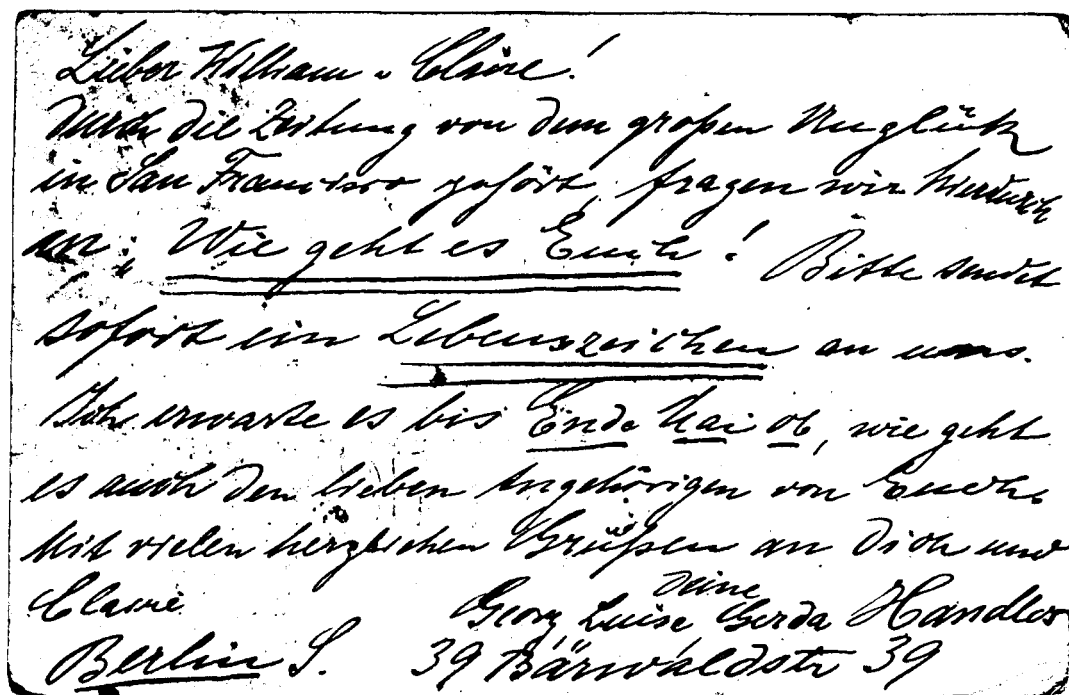 Lieber William u Claire!
durch die Zeitung von dem großen Unglück
in San Francisco gehört, fragen wir hierdurch
an: Wie geht es Euch! Bitte sendet
sofort ein Lebenszeichen an uns.
Ich erwarte es bis Ende Mai ob, wie geht
es auch den lieben Angehörigen von Euch.
Mit vielen herzlichen Grüßen an Dich und
Claire deine
Georg Luise Gerda Handloss
Berlin S. 39 Bärwaldstr 39